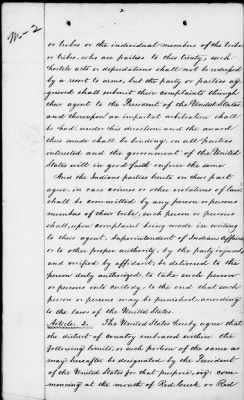 2
No-2
or tribes or the individual members of the tribe
or tribes, who are parties to this treaty, such
hostile acts or depredations shall not be redressed
by a resort to arms, but the party or parties ag-
grieved shall submit their complaints through
their agent to the President of the United States
and thereupon an impartial arbitration shall
be had, under his direction, and the award
thus made shall be binding on all parties
interested and the government of the United
States will in good faith enforce the same
And the Indians parties hereto on their part
agree, in case crimes or other violations of law
shall be committed by any person or persons
members of their tribe, such person or persons
shall, upon complaint being made in writing
to their agent, Superintendent of Indian Affairs
or to other proper authority, by the party injured,
and verified by affidavit, be delivered to the
person duly authorized, to take such person
or persons into custody, to the end that such
person or persons may be punished, according
to the laws of the United States.
Article 2. The United States hereby agree that
the district of country embraced within the
following limits, or such portion of the same as
may hereafter be designated by the President
of the United States for that purpose, viz: com-
mencing at the mouth of Red Creek or Red